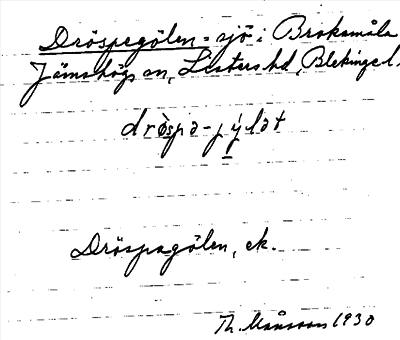 Dröspegölen = sjö i Broksmåla
Jämshögs sn, Listers hd, Blekinge l.
Dröspegölen, ek.
Th. Månsson 1930